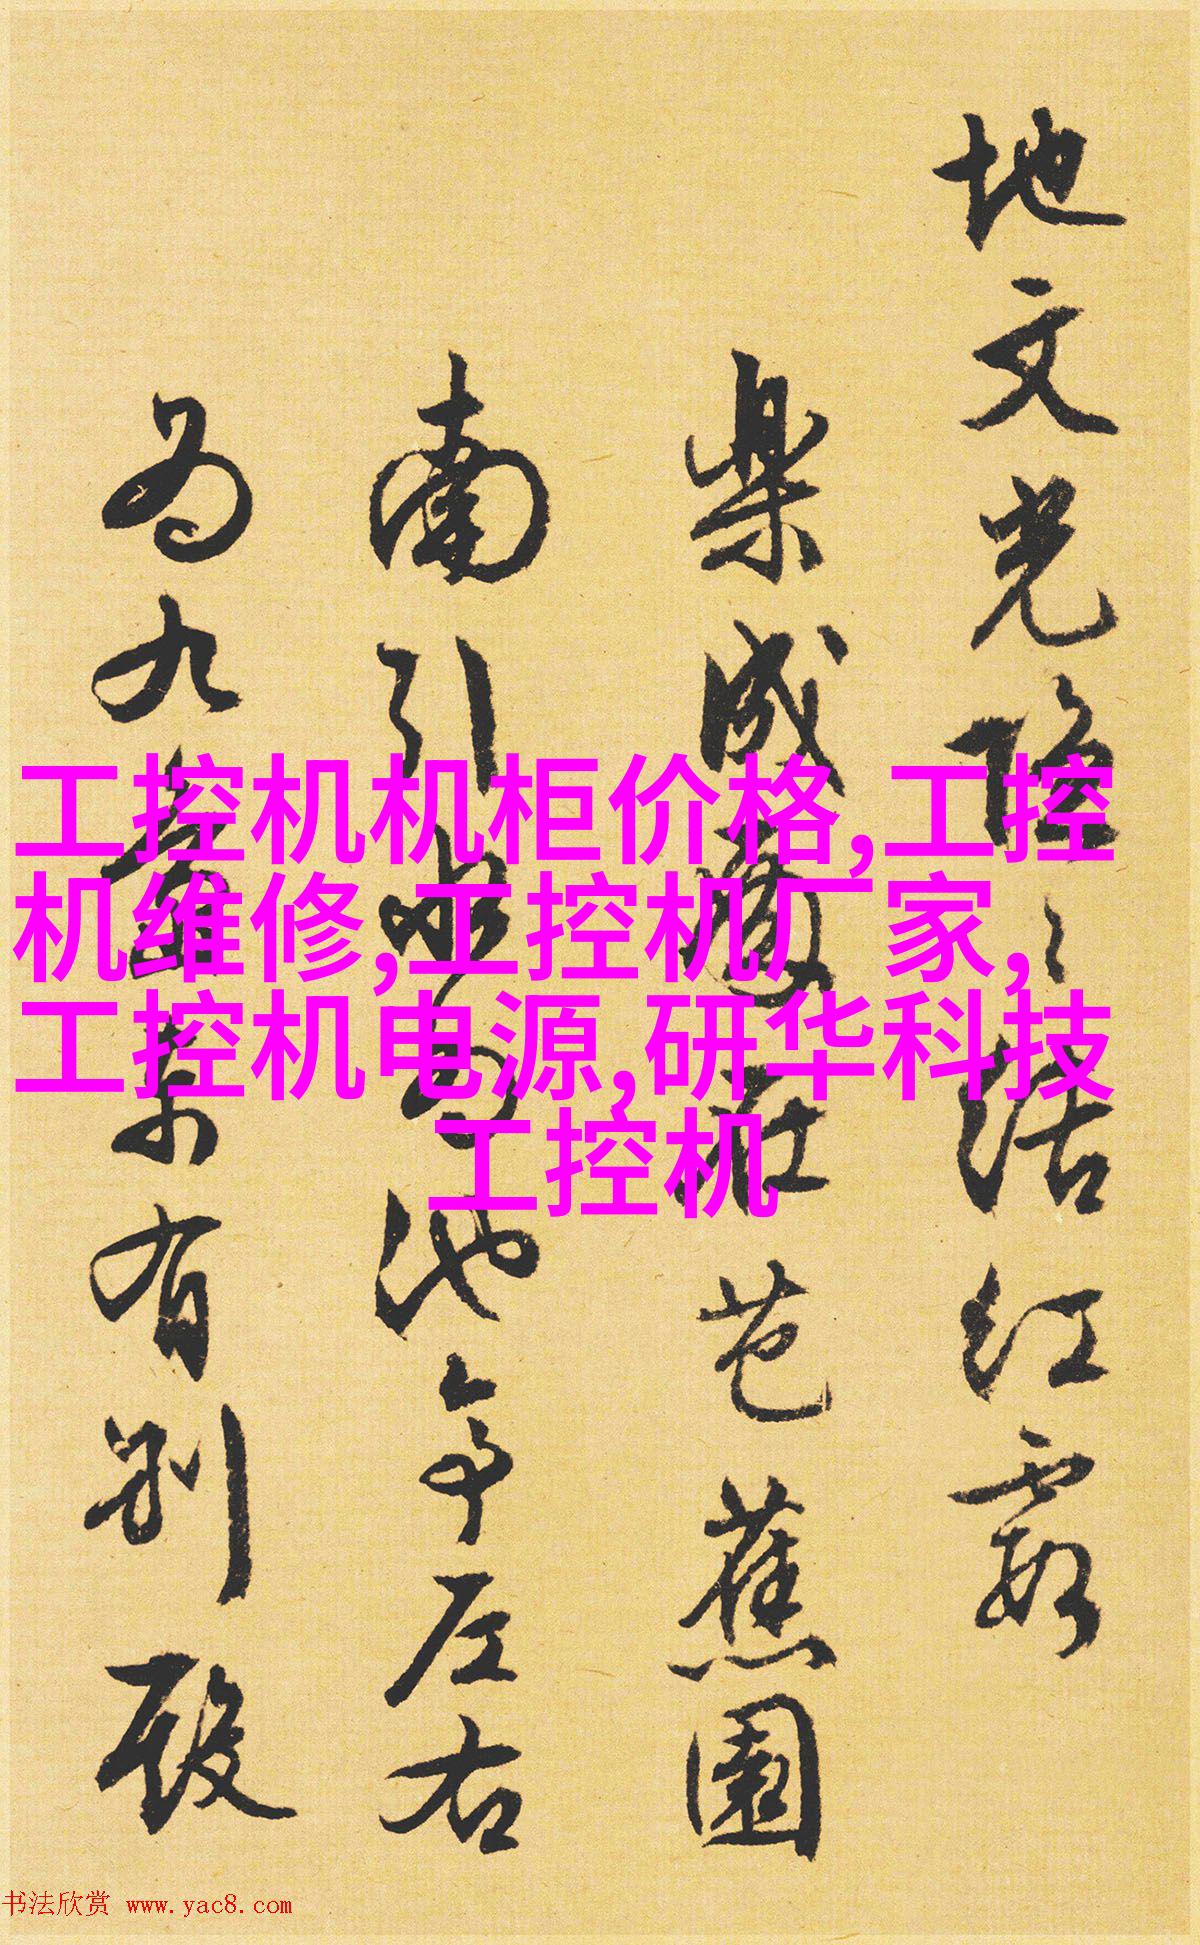 地文光陰之活红霞
樂成〇在芭蕉園
南引水为池亭左右
为九〇东有别殿
工控机机柜价格,工控
机维修,工控机厂家,
工控机电源,研华科技
工控机
书法欣赏 www.yac8.com